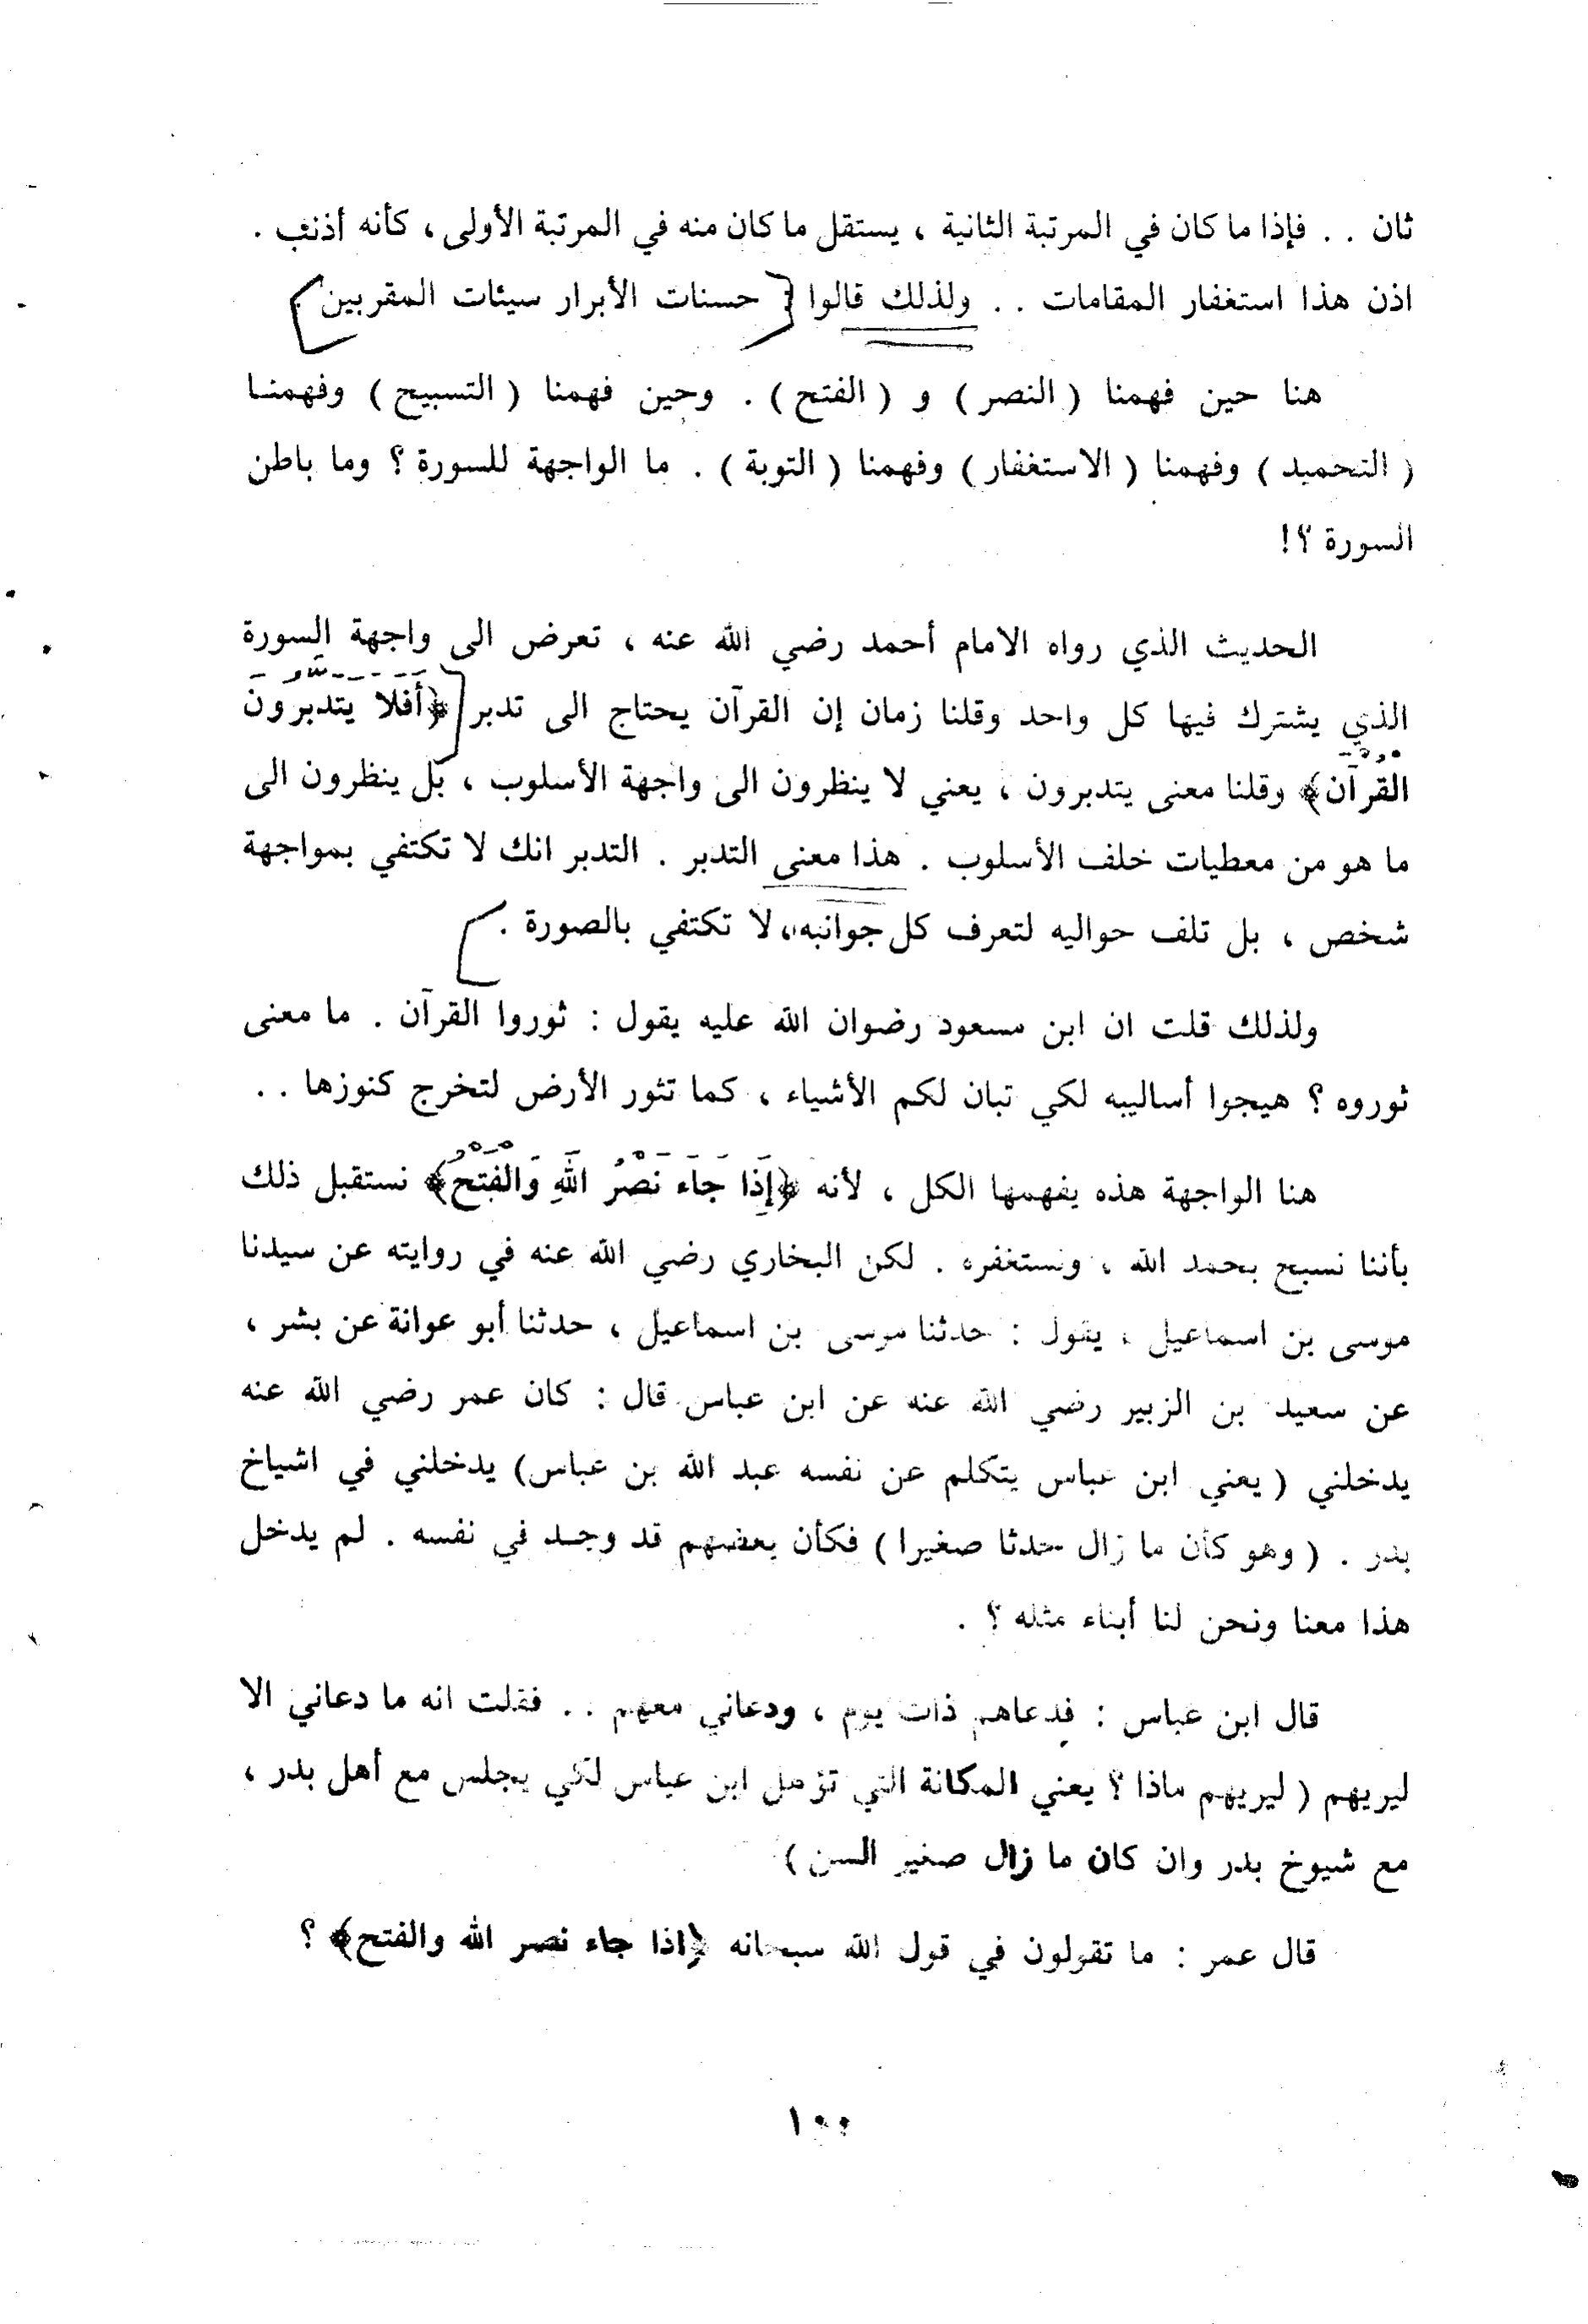 ثان . . فإذا ما كان في المرتبة الثانية ، يستقل ما كان منه في المرتبة الأولى ، كأنه أذنب .
اذن هذا استغفار المقامات . . ولذلك قالوا : حسنات الأبرار سيئات المقربين .
هنا حين فهمنا ( النصر ) و ( الفتح ) . وحين فهمنا ( التسبيح ) وفهمنا
( التحميد ) وفهمنا ( الاستغفار ) وفهمنا ( التوبة ) . ما الواجهة للسورة ؟ وما باطن
السورة ؟!
الحديث الذي رواه الامام أحمد رضي الله عنه ، تعرض الى واجهة السورة
الذي يشترك فيها كل واحد وقلنا زمان إن القرآن يحتاج الى تدبر ﴿أَفَلَا يَتَدَبَّرُونَ
الْقُرْآنَ﴾ وقلنا معنى يتدبرون ، يعني لا ينظرون الى واجهة الأسلوب ، بل ينظرون الى
ما هو من معطيات خلف الأسلوب . هذا معنى التدبر . التدبر انك لا تكتفي بمواجهة
شخص ، بل تلف حواليه لتعرف كل جوانبه ، لا تكتفي بالصورة .
ولذلك قلت ان ابن مسعود رضوان الله عليه يقول : ثوروا القرآن . ما معنى
ثوروه ؟ هيجوا أساليبه لكي تبان لكم الأشياء ، كما تثور الأرض لتخرج كنوزها . .
هنا الواجهة هذه يفهمها الكل ، لأنه ﴿إِذَا جَاءَ نَصْرُ اللَّهِ وَالْفَتْحُ﴾ نستقبل ذلك
بأننا نسبح بحمد الله ، ونستغفره . لكن البخاري رضي الله عنه في روايته عن سيدنا
موسى بن اسماعيل ، يقول : حدثنا موسى بن اسماعيل ، حدثنا أبو عوانة عن بشر ،
عن سعيد بن الزبير رضي الله عنه عن ابن عباس قال : كان عمر رضي الله عنه
يدخلني ( يعني ابن عباس يتكلم عن نفسه عبد الله بن عباس) يدخلني في اشياخ
بدر . ( وهو كأن ما زال حدثا صغيرا ) فكأن بعضهم قد وجد في نفسه . لم يدخل
هذا معنا ونحن لنا أبناء مثله ؟ .
قال ابن عباس : فدعاهم ذات يوم ، ودعاني معهم . . فقلت انه ما دعاني الا
ليريهم ( ليريهم ماذا ؟ يعني المكانة التي تؤهل ابن عباس لكي يجلس مع أهل بدر ،
مع شيوخ بدر وان كان ما زال صغير السن )
قال عمر : ما تقولون في قول الله سبحانه ﴿اذا جاء نصر الله والفتح﴾ ؟
١٠٠